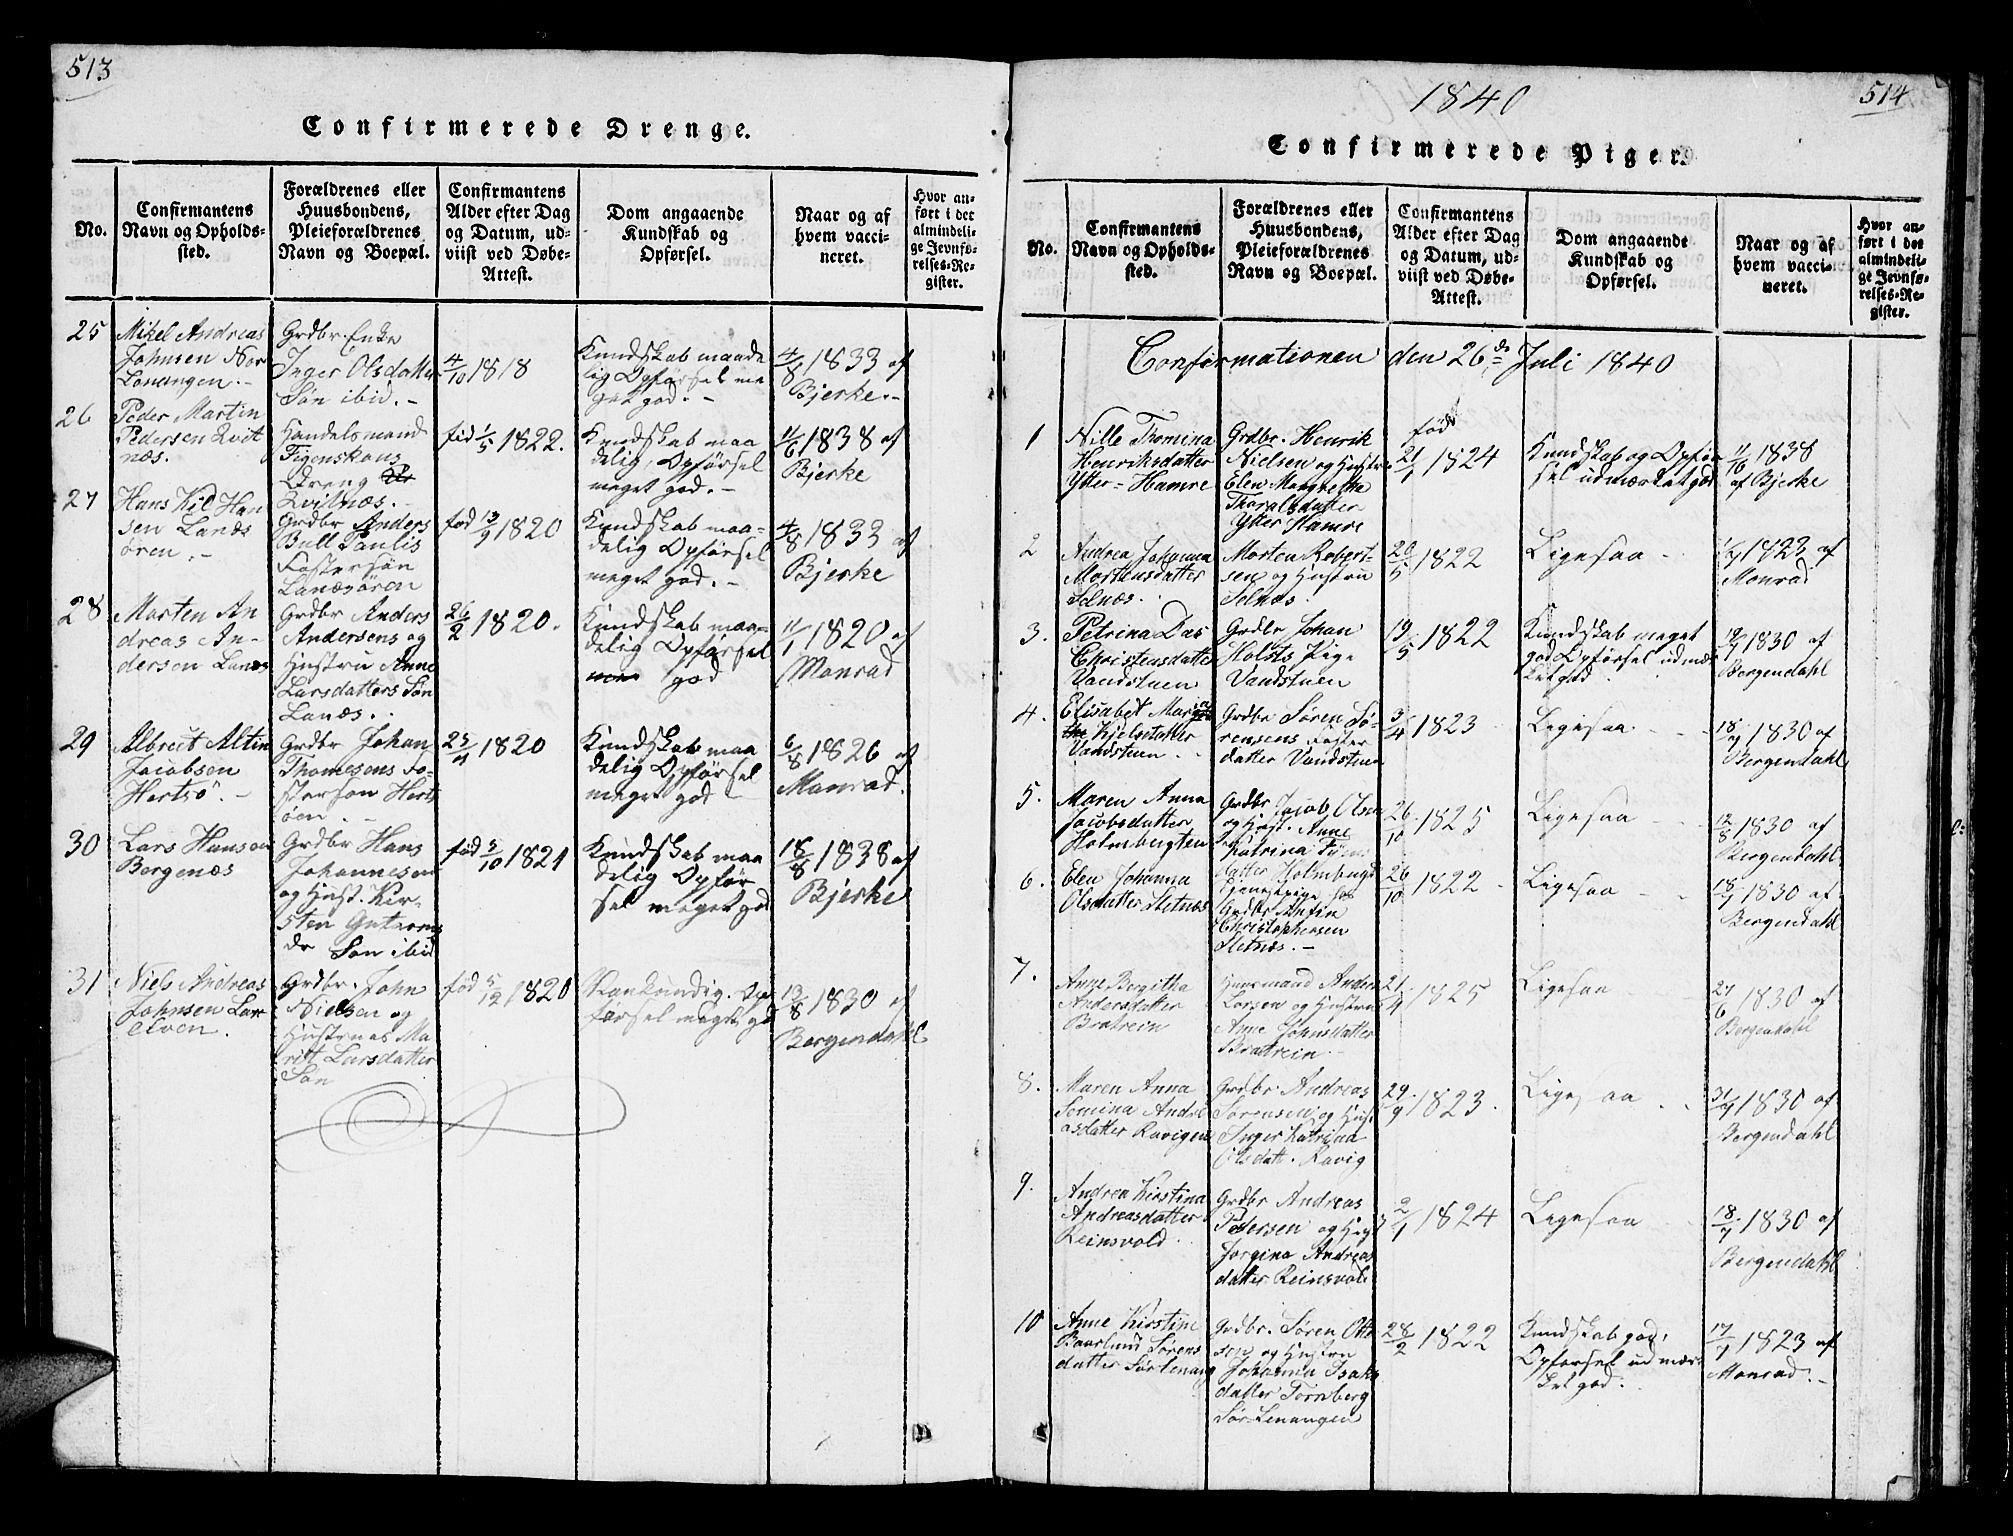 513
Confirmerede Drenge.
No.
Confirmantens
Navn og Opholds-
sted.
Forældrenes eller
Huusbondens,
Pleieforældrenes
Navn og Boepæl.
Confirmantens
Alder efter Dag
og Datum, ud-
viist ved Døbe-
Attest.
Dom angaaende
Kundskab og
Opførsel.
Naar og af
hvem vacci-
neret.
Hvor an-
ført i det
almindeli-
ge Jevnfø-
relses-Re-
gister.
25
Mikel Andreas
Johnsen Nor
Lenangen.-
Grdbr. Enke
Inger Olsdatter
Søn ibid.-
4/10 1818
Kundskab maade
lig Opførsel me
get god.-
4/8 1833 af
Bjerke.-
26
Peder Martin
Pedersen Qvit
næs.
Handelsmand
Figenskous
Dreng
Qvitnæs.-
fød 1/5 1822.
Kundskab maa
delig, Opførsel
meget god.-
11/6 1838 af
Bjerke
27
Hans Kil Han
sen Lanæs
ören.-
Grdbr Anders
Bull Paulis
Fostersøn
Lanæsören
fød 13/9 1820
Kundskab maa-
delig Opførsel
meget god.-
4/8 1833 af
Bjerke
28
Morten An
dreas An-
dersen Lanæs
Grdbr Anders
Andersens og
Hustru Anne
Larsdatters Søn
Lanæs.
26/2 1820.
Kundskab maa-
delig Opførsel
god
11/1 1820 af
Monrad
29
Albreit Altin
Jacobsen
Hertsö.-
Grdbr Johan
Thomesens Fo-
stersøn Herts
öen.-
1820
Kundskab maa
delig Opførsel
meget god
6/8 1826 af
Monrad.
30
Lars Hansen
Bergenæs
Grdbr Hans
Johannesen
og Hust. Kir-
sten Guttorms
dr Søn ibid
fød 3/10 1821
Kundskab maa
delig Opfør
sel meget god
18/8 1838 af
Bjerke
31
Niels Andreas
Johnsen Lar
elven.
Grdbr. John
Nielsen og
Hustrues Ma
rit Larsdatter
Søn
fød 5/12 1820
Opførsel meget god
13/8 1830 af
Bergendahl
1840
514
Confirmerede Piger.
No.
Confirmantens
Navn og Opholds-
sted.
Forældrenes eller
Huusbondens,
Pleieforældrenes
Navn og Boepæl.
Confirmantens
Alder efter Dag
og Datum, ud-
viist ved Døbe-
Attest.
Dom angaaende
Kundskab og
Opførsel.
Naar og af
hvem vacci-
neret.
Hvor an-
ført i det
almindeli-
ge Jevnfø-
relses-Re-
gister.
Confirmationen den 26de Juli 1840
1
Nille Thomina
Henriksdatter
Ytter-Hamre
Grdbr. Henrik
Nielsen og Hustru
Elen Margrethe
Tharaldsdatter
Ytter Hamre
fød
21/1 1824
Kundskab og Opfør
sel udmærket god
11/16 1838
af Bjerke
2
Andrea Johanna
Mortensdatter
Selnæs.
Morten Robert-
sen og Hustru
Selnæs.
20/5 1822
Ligesaa -
1823 af
Monrad
3.
Petrina Das
Christensdatter
Vandstuen
Grdbr Johan
Holsts Pige
Vandstuen
19/5 1822
Kundskab meget
god Opførsel udmær
ket god
1830 af
Bergendahl
4.
Elisabet Maria
Kjelsdatter
Vandstuen
Grdbr Søren Sø-
rensens Foster
datter Vandstuen
3/4 1823
Ligesaa.
18/7 1830 af
Bergendahl
5.
Maren Anna
Jacobsdatter
Holmbergten
Grdbr Jacob Olsen
og Hust. Anne
Katrina
datter
26/10 1825
Ligesaa
12/8 1830 af
Bergendahl
6.
Elen Johanna
Olsdatter Sletnæs
Tjenestpige hos
Grdbr Anfin
Christophersen
Sletnæs.-
26/10 1822
Ligesaa
18/7 1830 af
Bergendahl
7.
Anne Bergitha
Andersdatter
Bratrein
Huusmand Anders
Larsen og Hustru
Anne Johnsdatter
Bratrein
21/4 1825
Ligesaa
27/6 1830 af
Bergendahl
8.
Maren Anna
Semina Andre
asdatter Ravigen
Grdbr. Andreas
Sørensen og Hust
Inger Katrina
Olsdatt. Ravig
29/9 1823.
Ligesaa
31/7 1830 af
Bergendahl
9.
Andrea Kirstina
Andreasdatter
Reinsvold
Grdbr Andreas
Pedersen og Hust
Jorgina Andreas
datter Reinsvold
2/1 1824
Ligesaa
18/7 1830 af
Bergendahl
10
Anne Kirstine
Baarlund Sørens
datter Sørlenang
Grdbr. Søren Otte
sen og Hustru
Johanna Isaks
datter Tornberg
Sør-Lenangen
28/2 1822
Kundskab god,
Opførsel udmær
ket god.
17/7 1823 af
Monrad.-